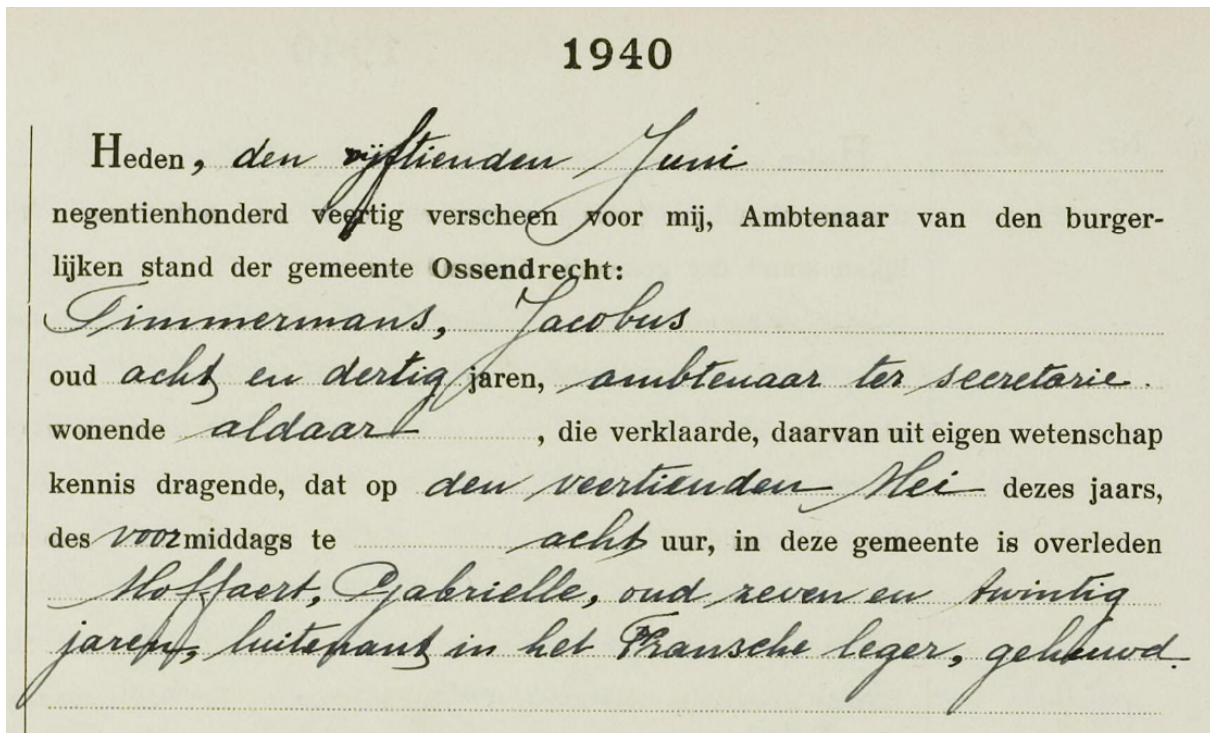 1940
Heden, den vijftienden Juni
negentienhonderd veertig verscheen voor mij, Ambtenaar van den burger-
lijken stand der gemeente Ossendrecht:
Timmermans, Jacobus
oud acht en dertig jaren, ambtenaar ter secretarie.
wonende aldaar, die verklaarde, daarvan uit eigen wetenschap
kennis dragende, dat op den veertienden Mei dezes jaars,
des voormiddags te acht uur, in deze gemeente is overleden
Moffaert, Gabrielle, oud zeven en twintig
jaren, luitenant in het Fransche leger, gehuwd.